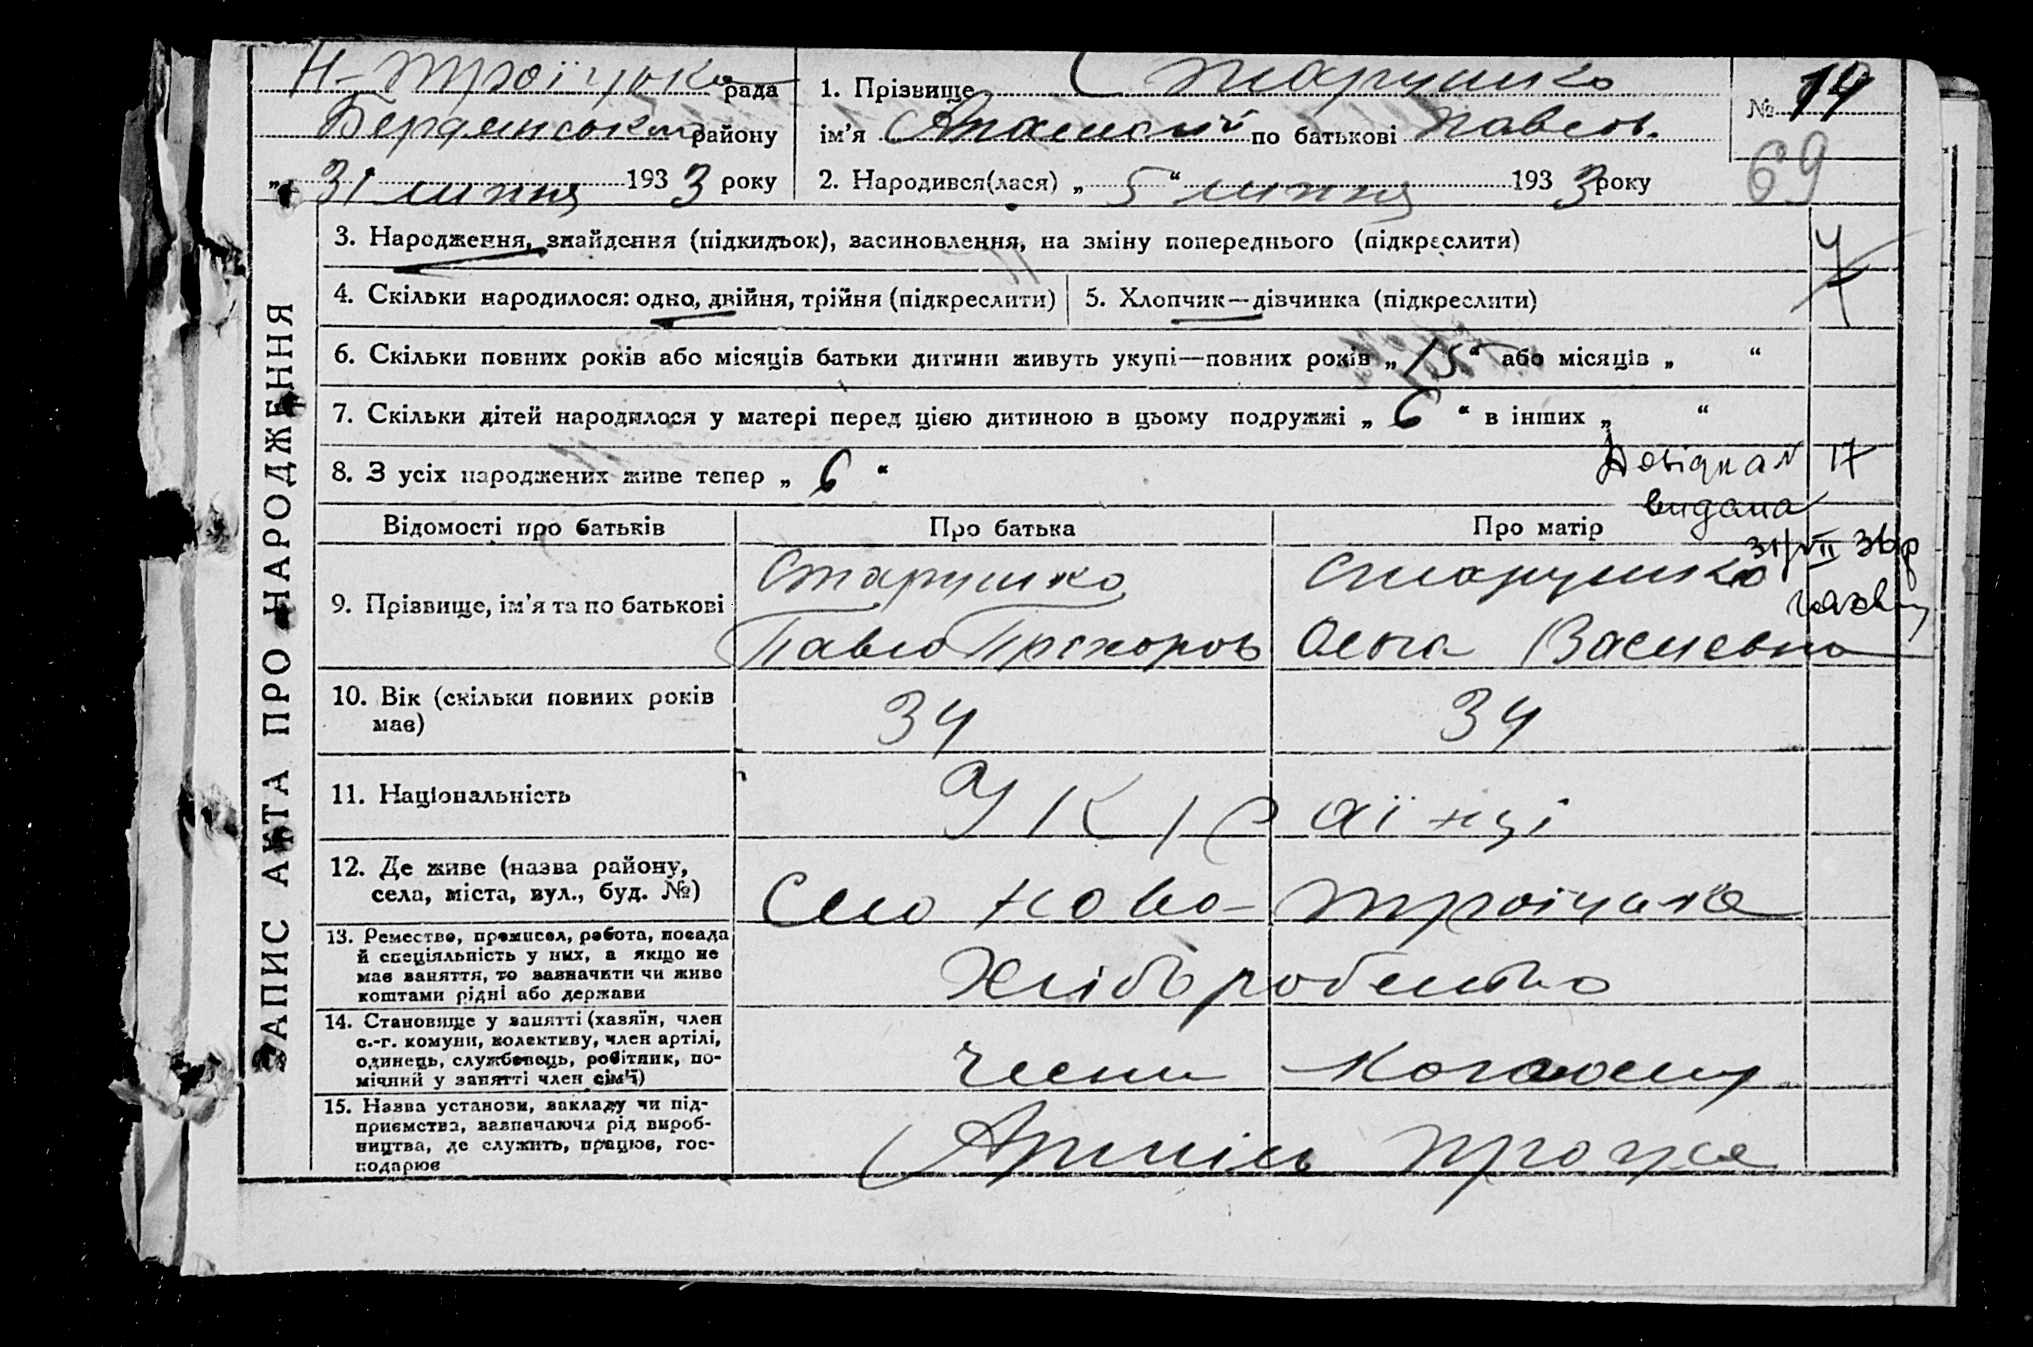 Н-Троїцька рада
Бердянського району
„ 31 " липня 1933 року
1. Прізвище Старушко
ім’я по батькові Павлов.
2. Народився(лася) „ 5 “ липня 1933 року
№ 14
69
ЗАПИС АКТА ПРО НАРОДЖЕННЯ
3. Народження, знайдення (підкидьок), засиновлення, на зміну попереднього (підкреслити)
4. Скільки народилося: одно, двійня, трійня (підкреслити)
5. Хлопчик—дівчинка (підкреслити)
6. Скільки повних років або місяців батьки дитини живуть укупі—повних років „ 15 “ або місяців „ “
7. Скільки дітей народилося у матері перед цією дитиною в цьому подружжі „ 6 “ в інших „ “
8. З усіх народжених живе тепер „ 6 “
17
видана
31/VII 36р
Відомості про батьків Про батька Про матір
9. Прізвище, ім’я та по батькові
Старушко Старушко
Павло Прохоров Ольга Василевна
10. Вік (скільки повних років
має)
34 34
11. Національність Українці
12. Де живе (назва району,
села, міста, вул., буд. №)
Село Ново-Троїцьке
13. Ремество, промисел, робота, посада
й спеціяльність у них, а якщо не
має заняття, то зазначити чи живе
коштами рідні або держави
Хліборобство
14. Становище у занятті (хазяїн, член
с.-г. комуни, колективу, член артілі,
одинець, службовець, робітник, по-
мічний у занятті член сім’ї)
Члени колгоспу
15. Назва установи, закладу чи під-
приємства, зазначаючи рід вироб-
ництва, де служить, працює, гос-
подарює
Артіль